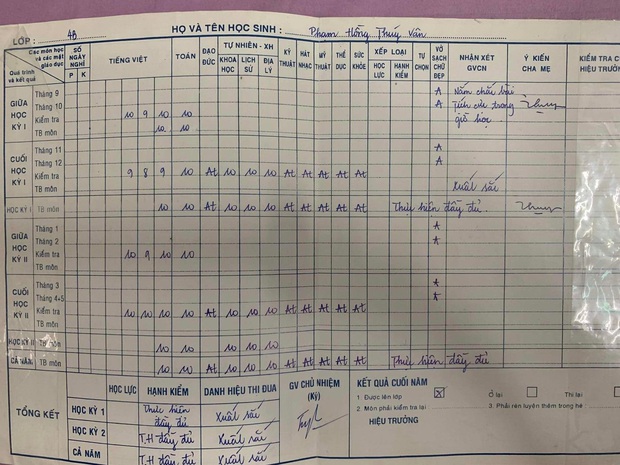 LỚP : 4B HỌ VÀ TÊN HỌC SINH : Phạm Hồng Thúy Vân
Các môn học và các mặt giáo dục
Quá trình và kết quả
SỐ NGÀY NGHỈ P K TIẾNG VIỆT TOÁN ĐẠO ĐỨC TỰ NHIÊN - XH KHOA HỌC LỊCH SỬ ĐỊA LÝ KỸ THUẬT HÁT NHẠC MỸ THUẬT THỂ DỤC SỨC KHỎE XẾP LOẠI HỌC LỰC HẠNH KIỂM TỰ CHỌN VỞ SẠCH CHỮ ĐẸP NHẬN XÉT GVCN Ý KIẾN CHA MẸ KIỂM TRA C HIỆU TRƯỞNG
GIỮA HỌC KỲ I
Tháng 9 A Nắm chắc bài
Tháng 10 A Tích cực trong
Kiểm tra 10 9 10 10 giờ học
TB môn 10 10
CUỐI HỌC KỲ I
Tháng 11 A
Tháng 12 A
Kiểm tra 9 8 9 10 At 10 10 10 At At At At At
TB môn Xuất sắc
HỌC KỲ I TB môn 10 10 At 10 10 10 At At At At At Thực hiện đầy đủ
GIỮA HỌC KỲ II
Tháng 1 A
Tháng 2 A
Kiểm tra 10 9 10 10
TB môn
CUỐI HỌC KỲ II
Tháng 3 A
Tháng 4+5 A
Kiểm tra 10 10 10 10 At 10 10 10 At At At At At
TB môn
HỌC KỲ II TB môn 10 10 10 10 10
CẢ NĂM TB môn 10 10 At 10 10 10 At At At At At Thực hiện đầy đủ
TỔNG KẾT
HỌC LỰC HẠNH KIỂM DANH HIỆU THI ĐUA GV CHỦ NHIỆM (Ký) KẾT QUẢ CUỐI NĂM
HỌC KỲ 1 Thực hiện đầy đủ Xuất sắc
HỌC KỲ 2 T.H đầy đủ Xuất sắc
CẢ NĂM T.H đầy đủ Xuất sắc
1. Được lên lớp X Ở lại Thi lại
2. Môn phải kiểm tra lại 3. Phải rèn luyện thêm trong hè
HIỆU TRƯỞNG